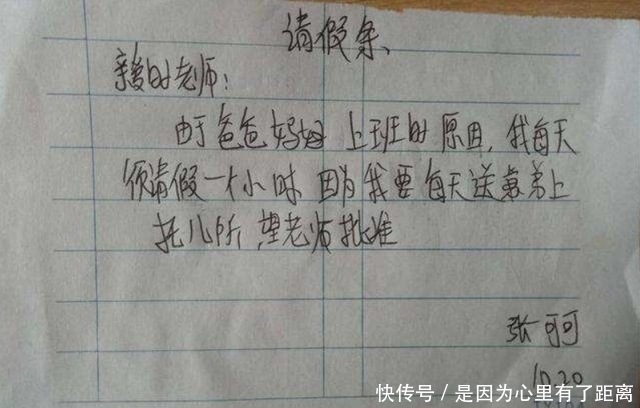 请假条
亲爱的老师：
由于爸爸妈妈上班的原因，我每天
须请假一个小时因为我要每天送弟弟上
托儿所望老师批准
张可可
10.20
快传号 / 是因为心里有了距离